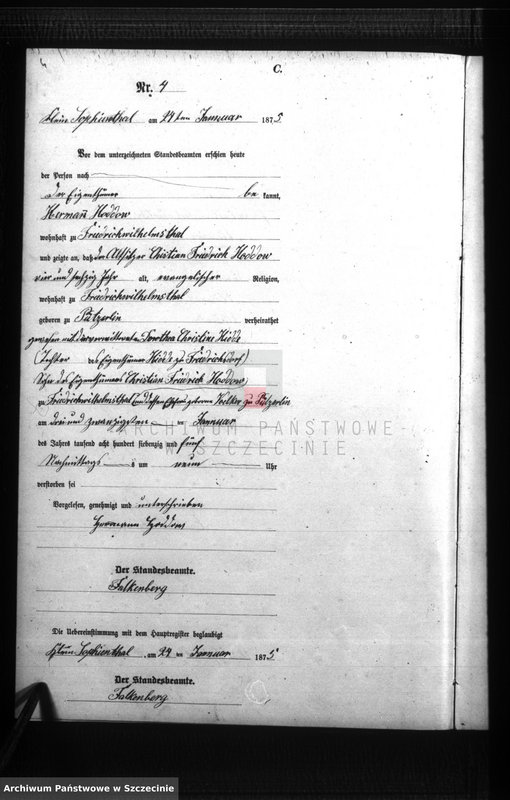 C.
Nr. 4
Klein Sophienthal am 24 ten Januar 1875
Vor dem unterzeichneten Standesbeamten erschien heute
der Person nach
der Eigenthümer bekannt,
Herman Hoddow
wohnhaft zu Friedrichwilhelmsthal
und zeigte an, daß der Altsitzer Christian Friedrich Hoddow
vier und sechzig Jahr alt, evangelischer Religion,
wohnhaft zu Friedrichwilhelmsthal
geboren zu Pützerlin verheirathet
gewesen mit der verwittwete Dorothea Christine Hidde
(Tochter des Eigenthümer Hidde zu Friedrichsdorf)
Sohn des Eigenthümers Christian Friedrich Hoddow
zu Friedrichwilhelmsthal und dessen geborenen zu Pützerlin
am drei und zwanzigsten Januar
des Jahres tausend acht hundert siebenzig und fünf
Nachmittags um neun Uhr
verstorben sei
Vorgelesen, genehmigt und unterschrieben
Hermann Hoddow
Der Standesbeamte.
Falkenberg
Die Uebereinstimmung mit dem Hauptregister beglaubigt
Klein Sophienthal am 24 ten Januar 1875
Der Standesbeamte.
Falkenberg
ARCHIWUM PAŃSTWOWE
W SZCZECINIE
Archiwum Państwowe w Szczecinie